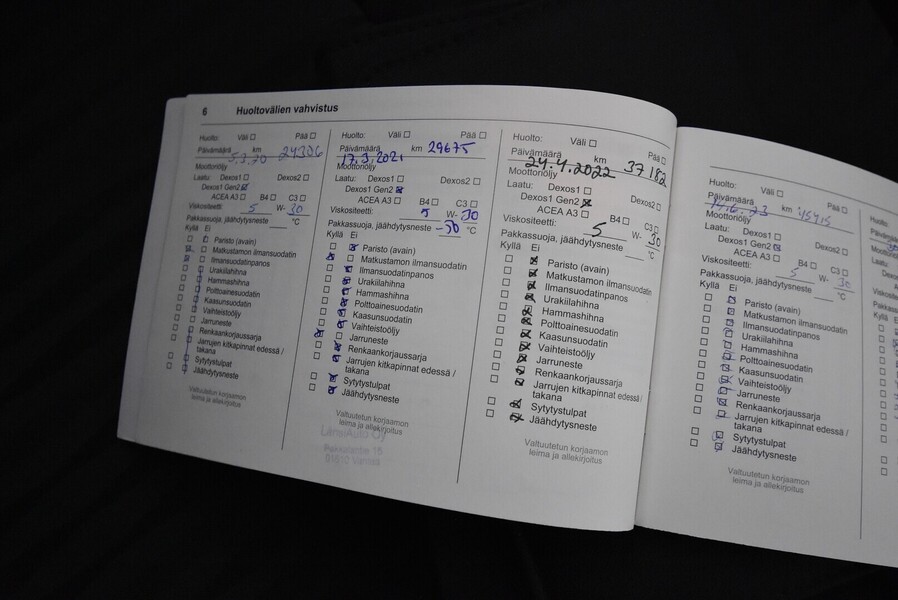 6 Huoltovälien vahvistus
Huolto: Väli Pää
Päivämäärä km
5.3.20 24306
Moottoriöljy
Laatu: Dexos1 Dexos2
Dexos1 Gen2
ACEA A3 B4 C3
Viskositeetti: 5 W- 30
Pakkassuoja, jäähdytysneste °C
Kyllä Ei
Paristo (avain)
Matkustamon ilmansuodatin
Ilmansuodatinpanos
Urakiilahihna
Hammashihna
Polttoainesuodatin
Kaasunsuodatin
Vaihteistoöljy
Jarruneste
Renkaankorjaussarja
Jarrujen kitkapinnat edessä /
takana
Sytytystulpat
Jäähdytysneste
Valtuutetun korjaamon
leima ja allekirjoitus
Huolto: Väli Pää
Päivämäärä km 29675
17.3.2021
Moottoriöljy
Laatu: Dexos1 Dexos2
Dexos1 Gen2
ACEA A3 B4 C3
Viskositeetti: 5 W- 30
Pakkassuoja, jäähdytysneste -30 °C
Kyllä Ei
Paristo (avain)
Matkustamon ilmansuodatin
Ilmansuodatinpanos
Urakiilahihna
Hammashihna
Polttoainesuodatin
Kaasunsuodatin
Vaihteistoöljy
Jarruneste
Renkaankorjaussarja
Jarrujen kitkapinnat edessä /
takana
Sytytystulpat
Jäähdytysneste
Valtuutetun korjaamon
leima ja allekirjoitus
LänsiAuto Oy
Huolto: Väli Pää
Päivämäärä km 37182
24.4.2022
Moottoriöljy
Laatu: Dexos1 Dexos2
Dexos1 Gen2
ACEA A3 B4 C3
Viskositeetti: 5 W- 30
Pakkassuoja, jäähdytysneste °C
Kyllä Ei
Paristo (avain)
Matkustamon ilmansuodatin
Ilmansuodatinpanos
Urakiilahihna
Hammashihna
Polttoainesuodatin
Kaasunsuodatin
Vaihteistoöljy
Jarruneste
Renkaankorjaussarja
Jarrujen kitkapinnat edessä /
takana
Sytytystulpat
Jäähdytysneste
Valtuutetun korjaamon
leima ja allekirjoitus
Huolto: Väli Pää
Päivämäärä km 45415
Moottoriöljy
Laatu: Dexos1 Dexos2
Dexos1 Gen2
ACEA A3 B4 C3
Viskositeetti: 5 W- 30
Pakkassuoja, jäähdytysneste °C
Kyllä Ei
Paristo (avain)
Matkustamon ilmansuodatin
Ilmansuodatinpanos
Urakiilahihna
Hammashihna
Polttoainesuodatin
Kaasunsuodatin
Vaihteistoöljy
Jarruneste
Renkaankorjaussarja
Jarrujen kitkapinnat edessä /
takana
Sytytystulpat
Jäähdytysneste
Valtuutetun korjaamon
leima ja allekirjoitus